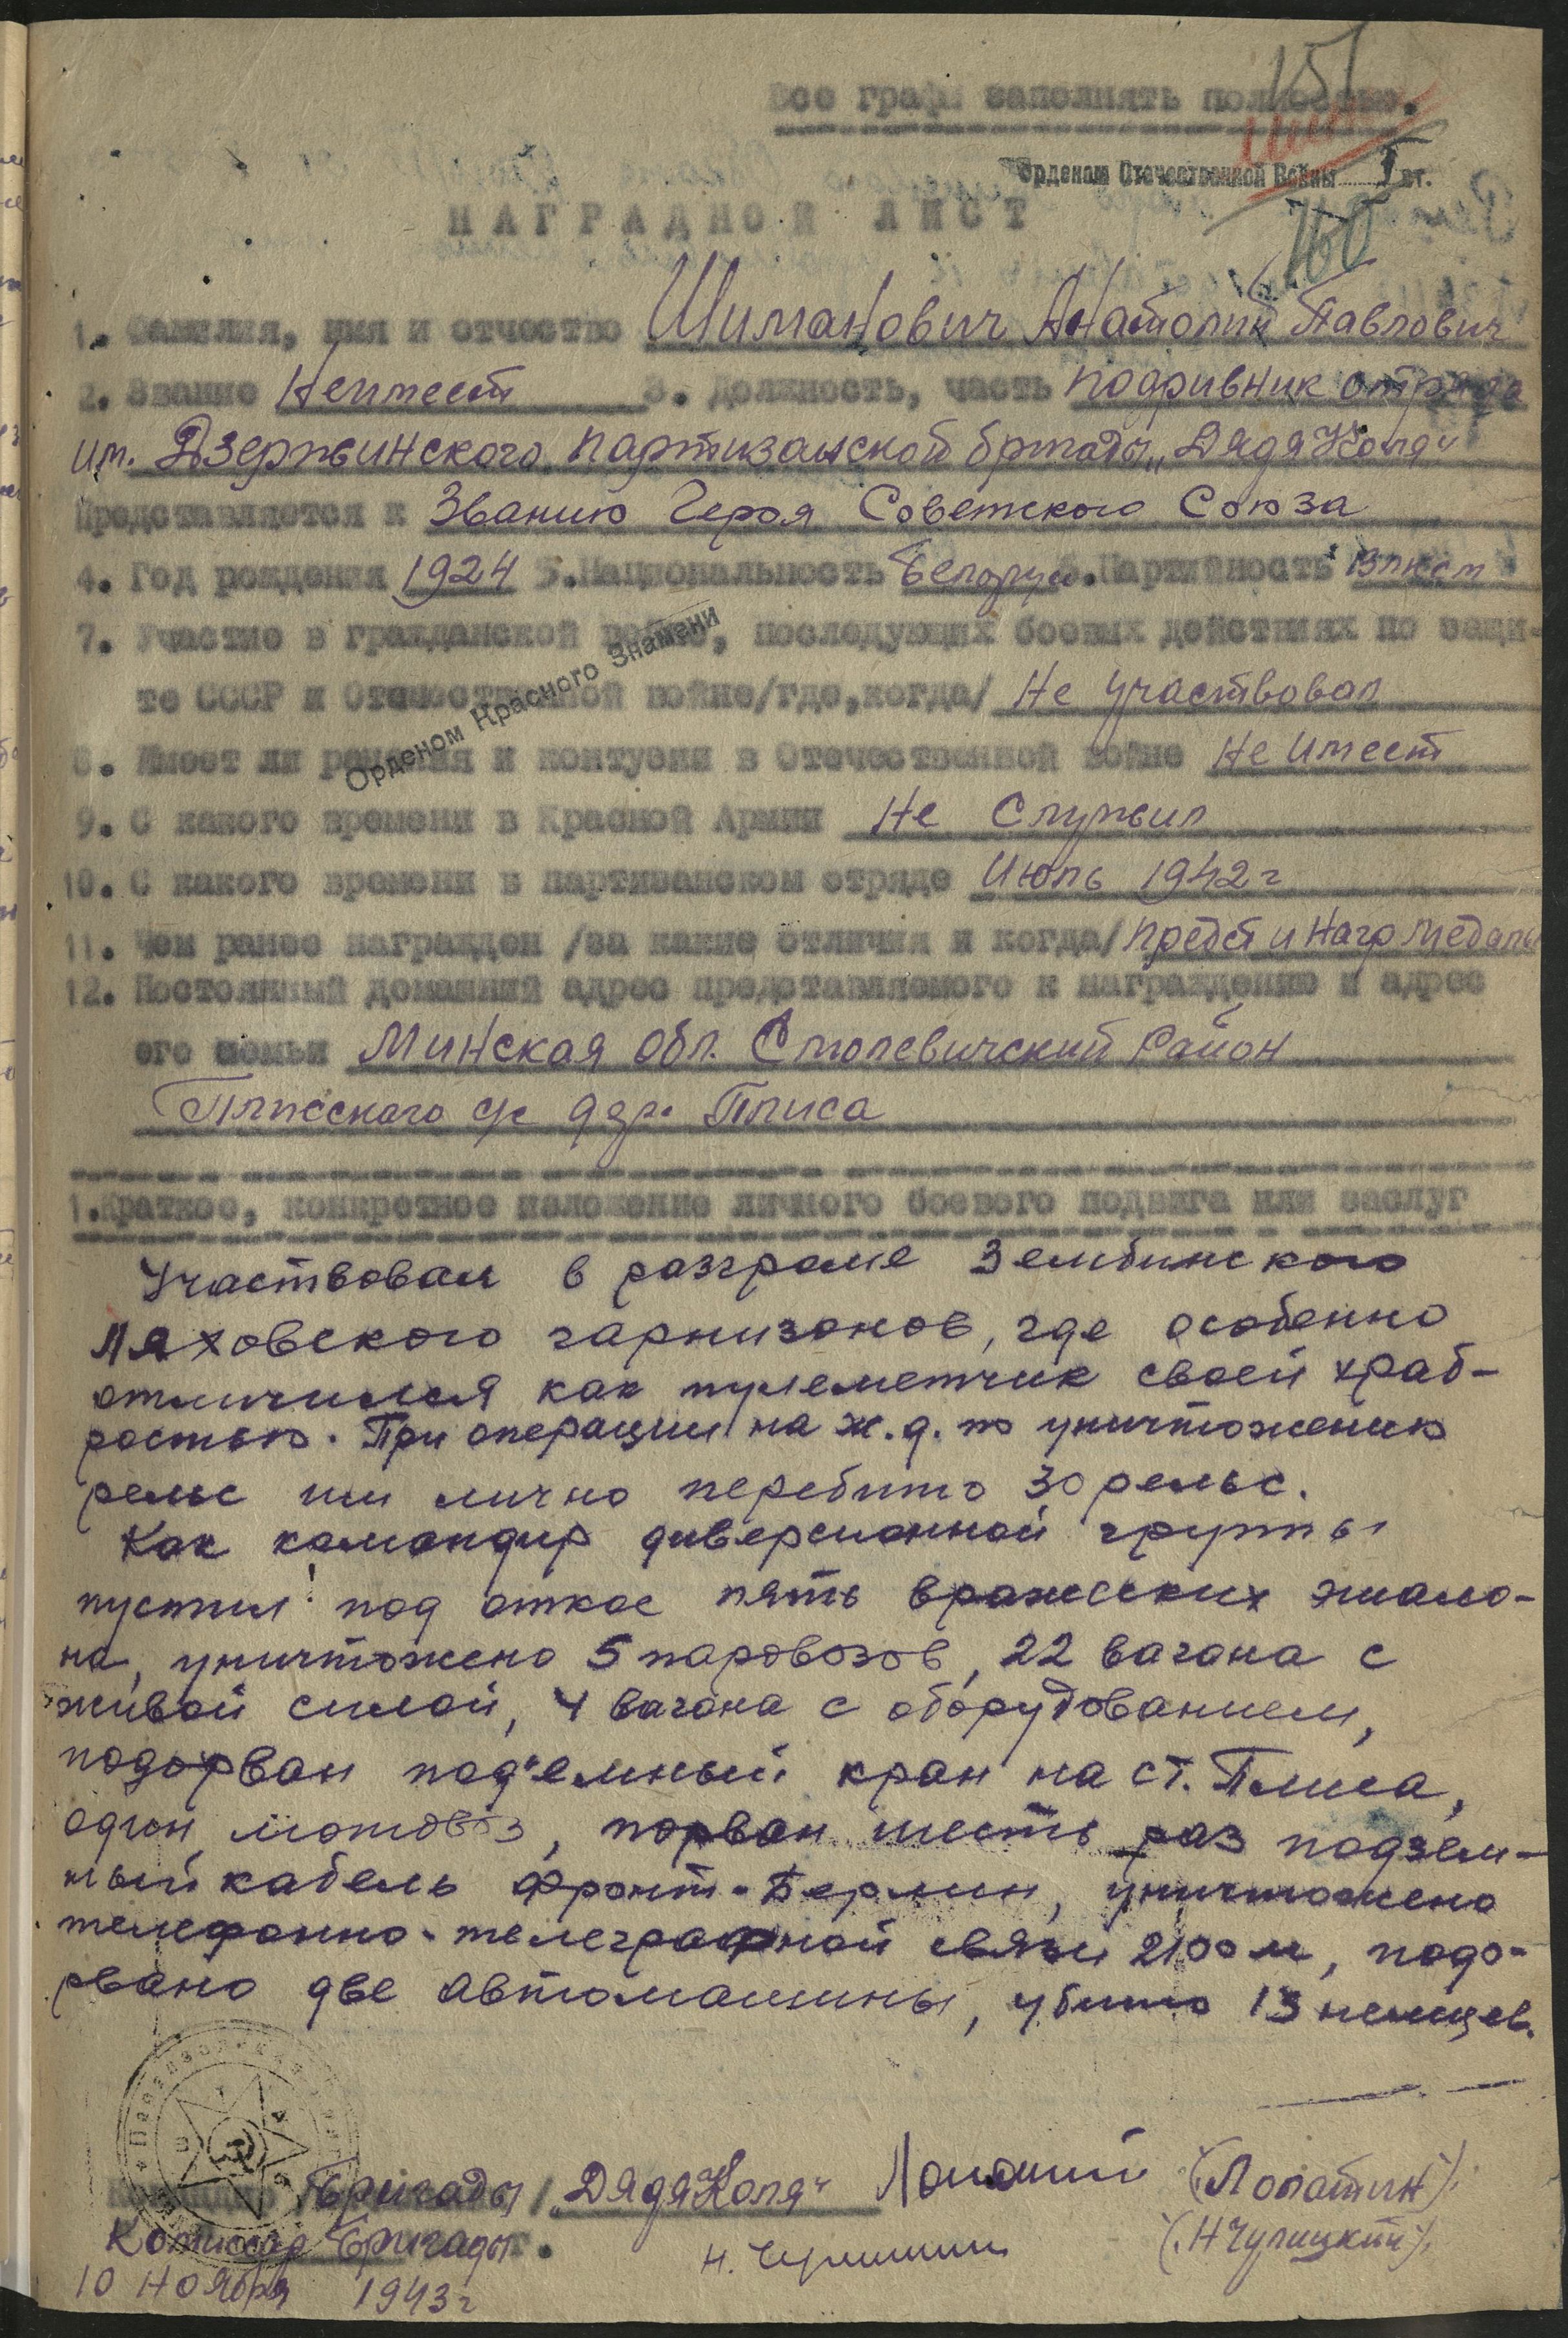 151
Все графы заполнять полностью.
Орденом Отечественной Войны I ст.
160
НАГРАДНОЙ ЛИСТ
1. Фамилия, имя и отчество Шиманович Анатолий Павлович
2. Звание Неимеет 3. Должность, часть подривник отряда
им. Дзержинского партизанской бригады „Дядя Коля"
Представляется к Званию Героя Советского Союза
4. Год рождения 1924 5. Национальность Белорус 6. Партийность Влксм
7. Участие в гражданской войне, последующих боевых действиях по защи-
те СССР и Отечественной войне/где,когда/ Не участвовал
Орденом Красного Знамени
8. Имеет ли ранения и контузии в Отечественной войне Не имеет
9. С какого времени в Красной Армии Не Служил
10. С какого времени в партизанском отряде Июль 1942 г
11. Чем ранее награжден /за какие отличия и когда/ предст и Нагр медалью
12. Постоянный домашний адрес представляемого к награждению и адрес
его семьи Минская обл. Смолевичский Район
Плисского с/с дер. Плиса
1.Краткое, конкретное изложение личного боевого подвига или заслуг
Участвовал в разгроме Зембинского
Ляховского гарнизонов, где особенно
отличился как пулеметчик своей храб-
ростью. При операции на ж.д. по уничтожению
рельс им лично перебито 30 рельс.
Как командир диверсионной группы
пустил под откос пять вражеских эшело-
на, уничтожено 5 паровозов, 22 вагона с
живой силой, 4 вагона с оборудованием,
подорван под"емный кран на ст. Плиса,
один мотовоз, порван шесть раз подзем-
ный кабель Фронт-Берлин, уничтожено
телефонно-телеграфной связи 2100 м, подо-
рвано две автомашины, убито 13 немцев.
Командир Бригады „Дядя Коля" (Лопатин)
Комиссар Бригады. (Н Чулицкий)
10 Ноября 1943 г